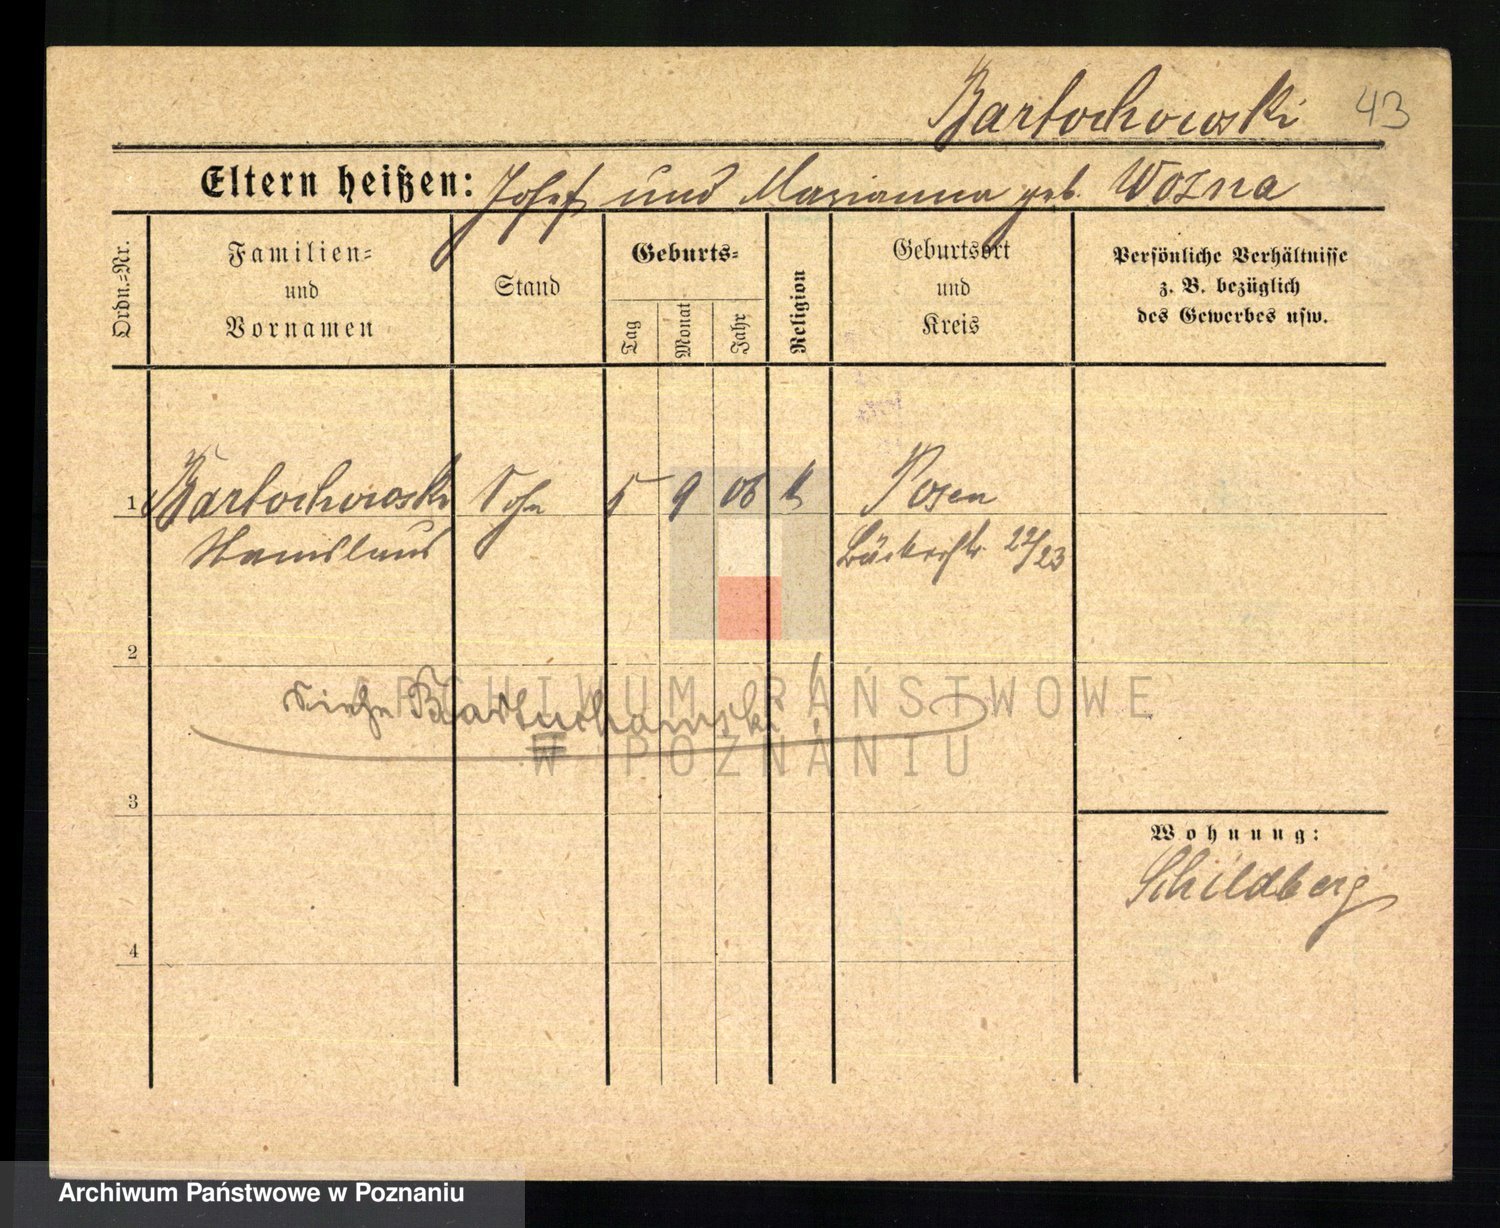 Bartochowski 43
Eltern heißen: Josef und Marianna geb. Wozna
Ordn.-Nr.
Familien- und Vornamen
Stand
Geburts-
Tag
Monat
Jahr
Religion
Geburtsort und Kreis
Persönliche Verhältnisse
z. B. bezüglich
des Gewerbes usw.
1 Bartochowski Sohn 5 9 06 k Posen
Stanislaus Bäckerstr. 22/23
2
siehe Bartuchowski!
ARCHIWUM PAŃSTWOWE
W POZNANIU
3
Wohnung:
Schildberg
4
Archiwum Państwowe w Poznaniu